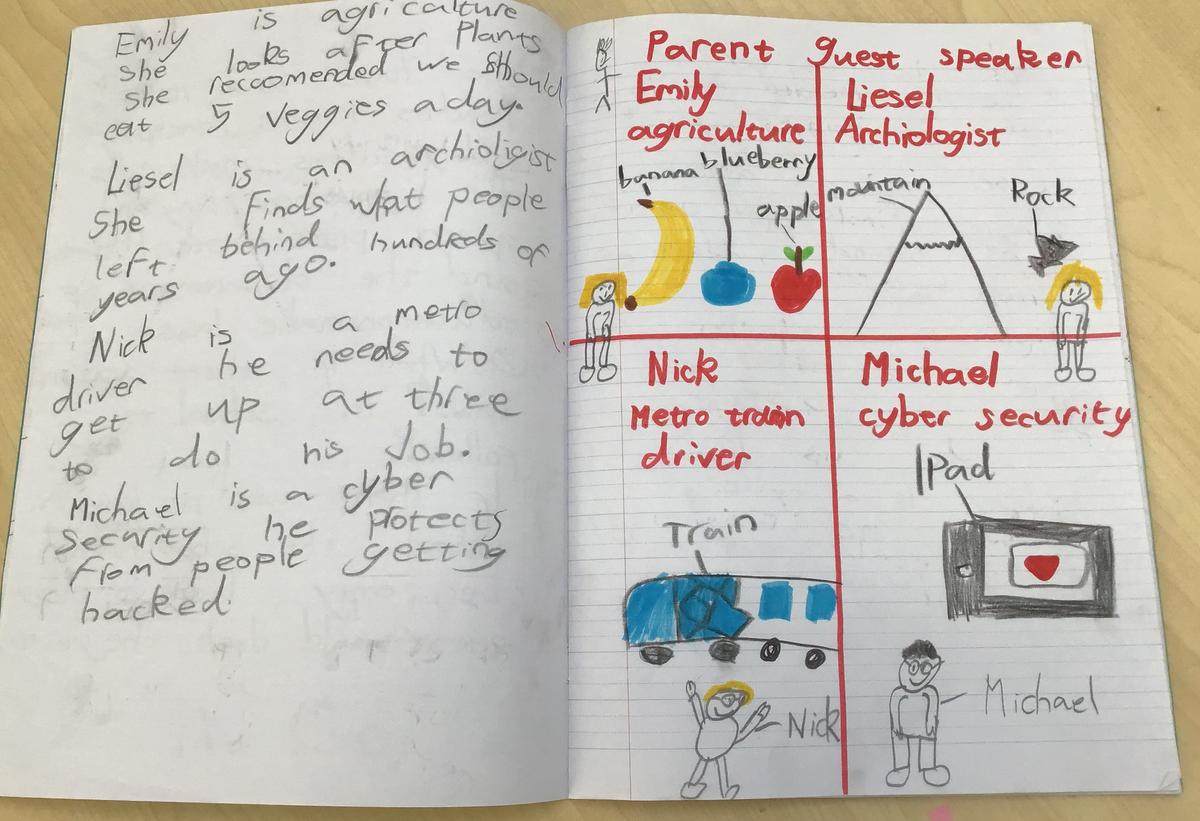 Emily is agriculture
she looks after Plants
She reccomended we Should
eat 5 veggies a day.
Liesel is an archioligist
She finds what people
left behind hundreds of
years ago.
Nick is a metro
driver he needs to
get up at three
to do his Job.
Michael is a cyber
security he Protects
from people getting
hacked.
Parent guest speaker
Emily
agriculture
banana
blueberry
apple
Liesel
Archiologist
mountain
Rock
Nick
Metro train
driver
Train
Nick
Michael
cyber security
IPad
Michael